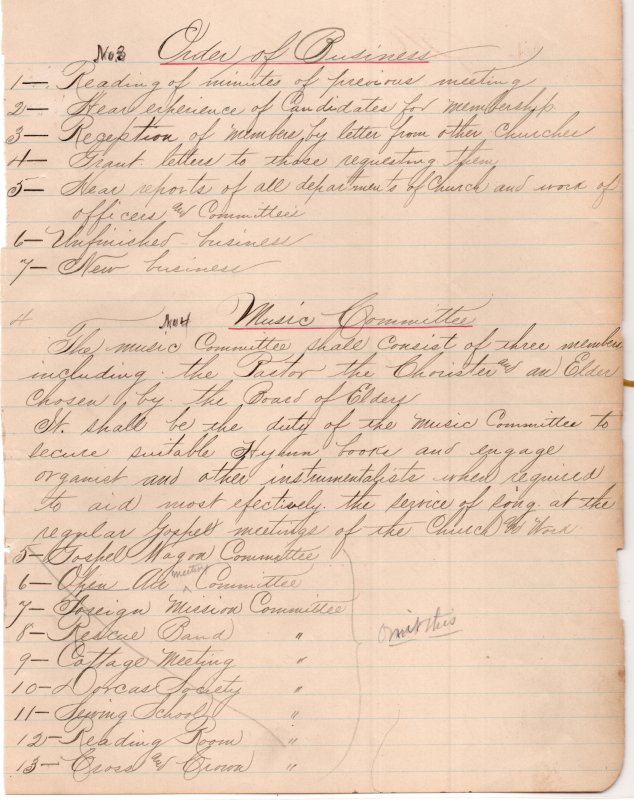 No. 3 Order of Business
1— Reading of minutes of previous meeting
2— Hear experience of Candidates for membership
3— Reception of members by letter from other Churches
4— Grant letters to those requesting them
5— Hear reports of all departments of Church and work of
officers and Committees
6— Unfinished business
7— New business
4 No 4 Music Committee
The music Committee shall consist of three members
including the Pastor the Chorister and an Elder
chosen by the Board of Elders
It shall be the duty of the Music Committee to
secure suitable Hymn books and engage
organist and other instrumentalists when required
to aid most efectively the service of song at the
regular Gospel meetings of the Church and Work
5— Gospel Wagon Committee
6— Open Air meeting Committee
7— Foreign Mission Committee
8— Rescue Band "
9— Cottage Meeting "
10— Dorcas Society "
11— Sewing School "
12— Reading Room "
13— Cross and Crown "
omit this